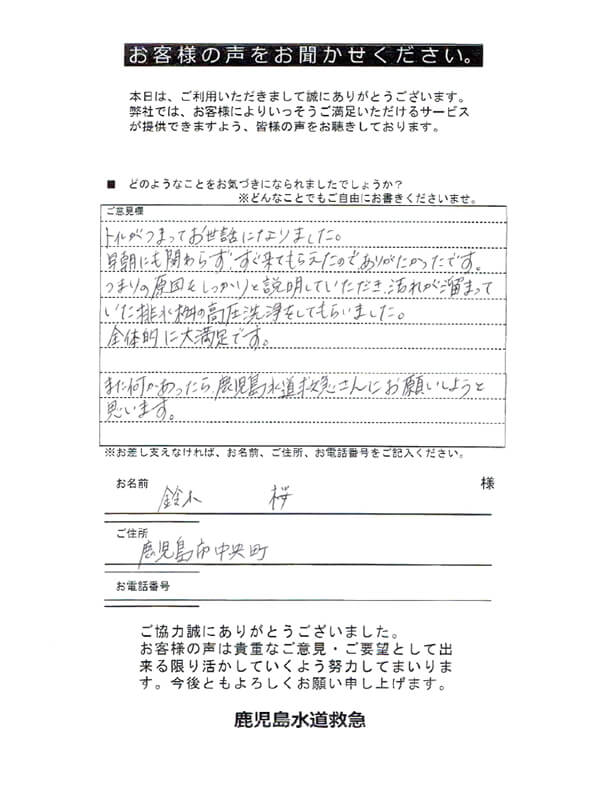 お客様の声をお聞かせください。
本日は、ご利用いただきまして誠にありがとうございます。
弊社では、お客様によりいっそうご満足いただけるサービス
が提供できますよう、皆様の声をお聴きしております。
■ どのようなことをお気づきになられましたでしょうか？
※どんなことでもご自由にお書きくださいませ。
ご意見欄
トイレがつまってお世話になりました。
早朝にも関わらず、すぐ来てもらえたのでありがたかったです。
つまりの原因をしっかりと説明していただき、汚れが溜まって
いた排水桝の高圧洗浄をしてもらいました。
全体的に大満足です。
また何かあったら、鹿児島水道救急さんにお願いしようと
思います。
※お差し支えなければ、お名前、ご住所、お電話番号をご記入ください。
お名前 鈴木 桜 様
ご住所
鹿児島市中央町
お電話番号
ご協力誠にありがとうございました。
お客様の声は貴重なご意見・ご要望として出
来る限り活かしていくよう努力してまいりま
す。今後ともよろしくお願い申し上げます。
鹿児島水道救急